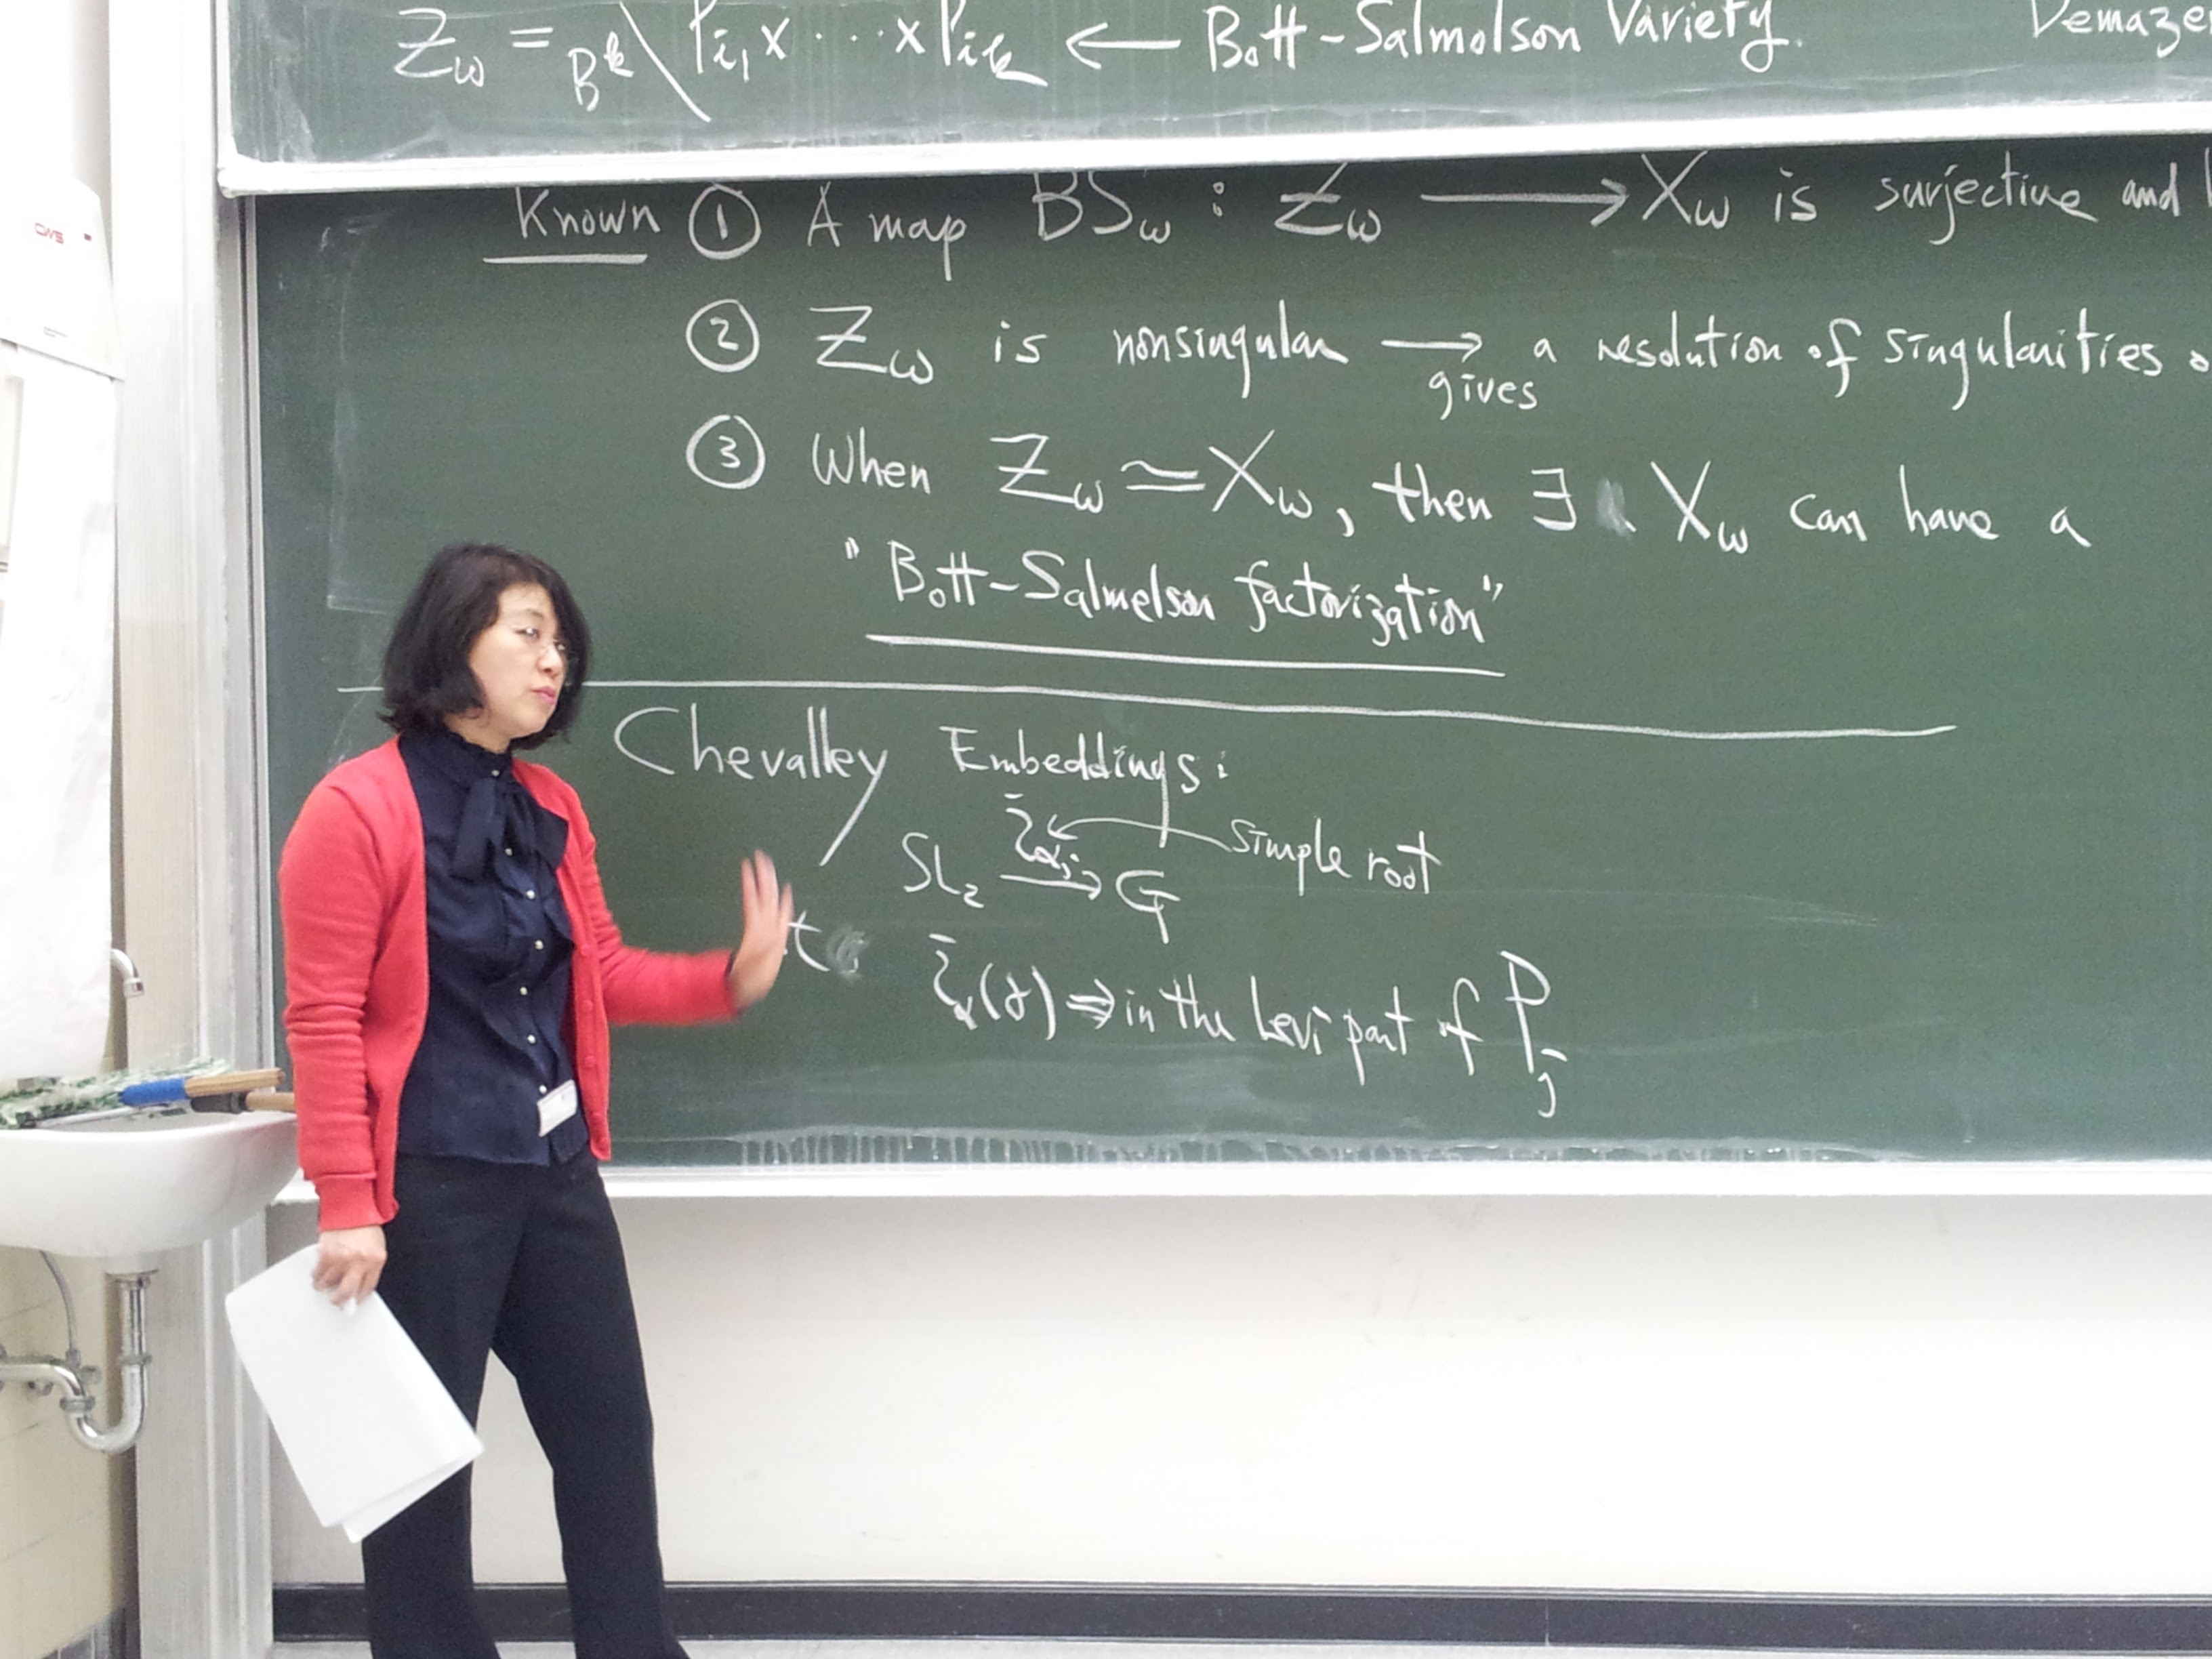 Z_w = B^k \ P_{i_1} x ... x P_{i_k} ← Bott-Salmolson Variety.
Known ① A map BS_w : Z_w → X_w is surjective and
② Z_w is nonsingular → gives a resolution of singularities
③ When Z_w ≃ X_w, then ∃ X_w can have a
"Bott-Salmelson factorization"
Chevalley Embeddings:
simple root
SL_2 → G
(γ) ⇒ in the Levi part of P_j
CWS